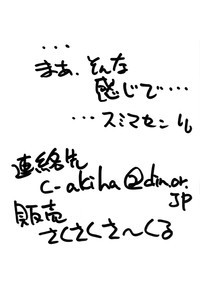 ・・・
まあ、そんな
感じで・・・・
・・・スミマセン
連絡先
c-akiha@dion.or.
JP
販売
さくさくさ〜くる